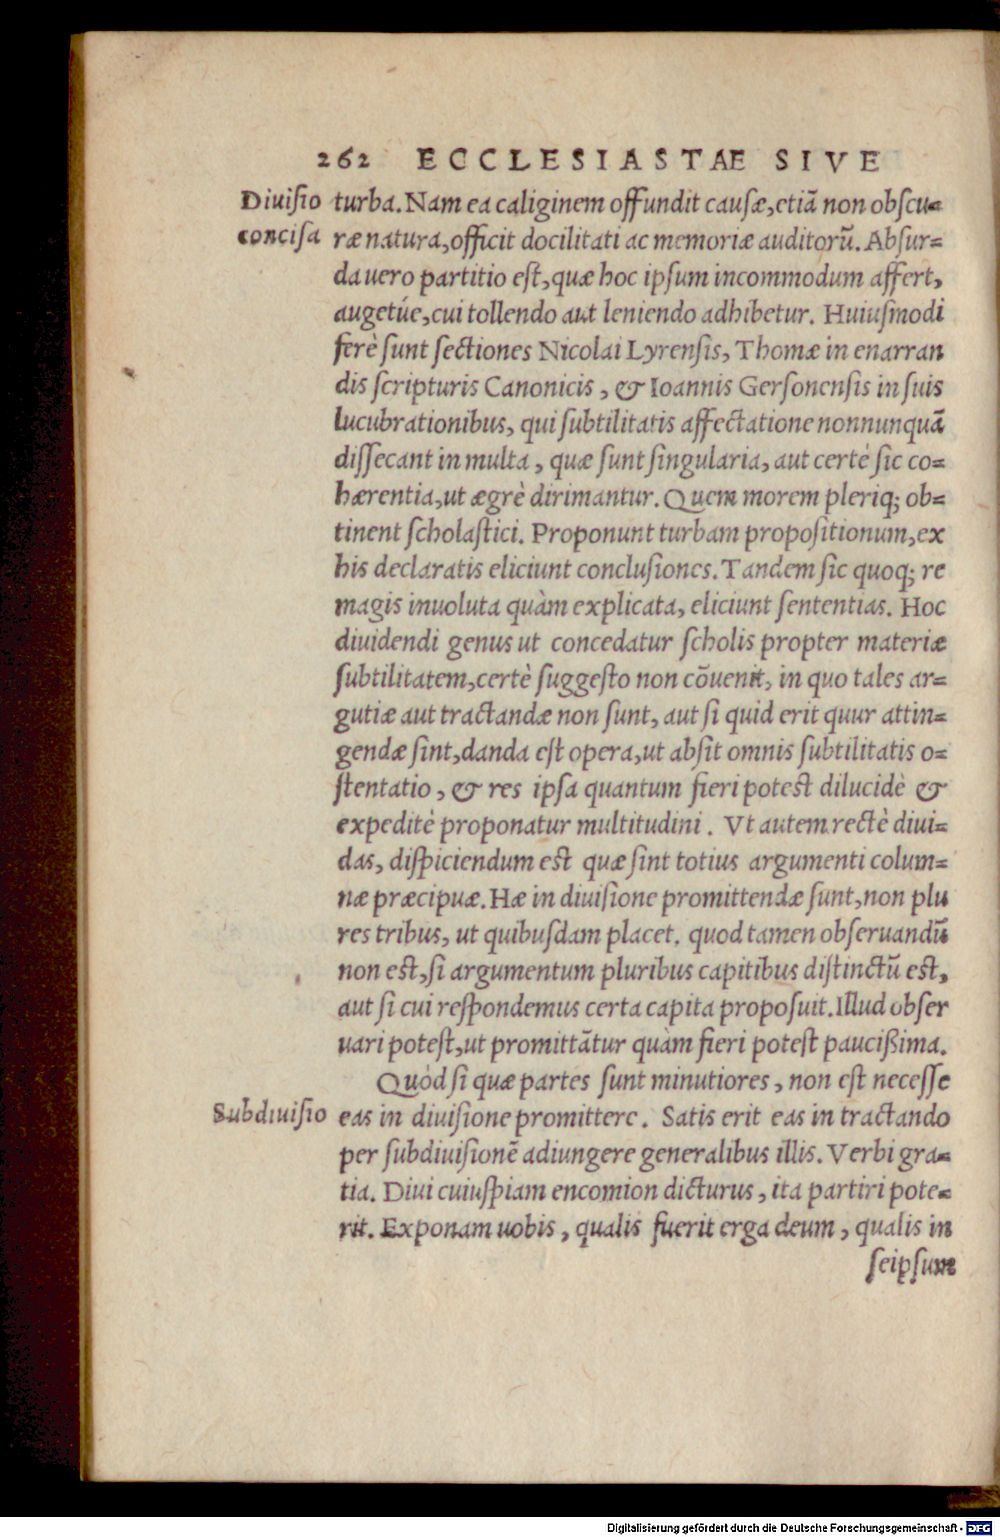 262 ECCLESIASTAE SIVE
Diuisio concisa
turba. Nam ea caliginem offundit causæ, etiã non obscu-
ræ natura, officit docilitati ac memoriæ auditorũ. Absur-
da uero partitio est, quæ hoc ipsum incommodum affert,
augetúe, cui tollendo aut leniendo adhibetur. Huiusmodi
ferè sunt sectiones Nicolai Lyrensis, Thomæ in enarran
dis scripturis Canonicis, & Ioannis Gersonensis in suis
lucubrationibus, qui subtilitatis affectatione nonnunquã
dissecant in multa, quæ sunt singularia, aut certè sic co-
hærentia, ut ægrè dirimantur. Quem morem pleriq; ob-
tinent scholastici. Proponunt turbam propositionum, ex
his declaratis eliciunt conclusiones. Tandem sic quoq; re
magis inuoluta quàm explicata, eliciunt sententias. Hoc
diuidendi genus ut concedatur scholis propter materiæ
subtilitatem, certè suggesto non cõuenit, in quo tales ar-
gutiæ aut tractandæ non sunt, aut si quid erit quur attin-
gendæ sint, danda est opera, ut absit omnis subtilitatis o-
stentatio, & res ipsa quantum fieri potest dilucidè &
expeditè proponatur multitudini. Vt autem rectè diui-
das, dispiciendum est quæ sint totius argumenti colum-
næ præcipuæ. Hæ in diuisione promittendæ sunt, non plu
res tribus, ut quibusdam placet. quod tamen obseruandũ
non est, si argumentum pluribus capitibus distinctũ est,
aut si cui respondemus certa capita proposuit. Illud obser
uari potest, ut promittãtur quàm fieri potest paucißima.
Quòd si quæ partes sunt minutiores, non est necesse
Subdiuisio
eas in diuisione promittere. Satis erit eas in tractando
per subdiuisionẽ adiungere generalibus illis. Verbi gra-
tia. Diui cuiuspiam encomion dicturus, ita partiri pote-
rit. Exponam uobis, qualis fuerit erga deum, qualis in
seipsum
Digitalisierung gefördert durch die Deutsche Forschungsgemeinschaft - DFG